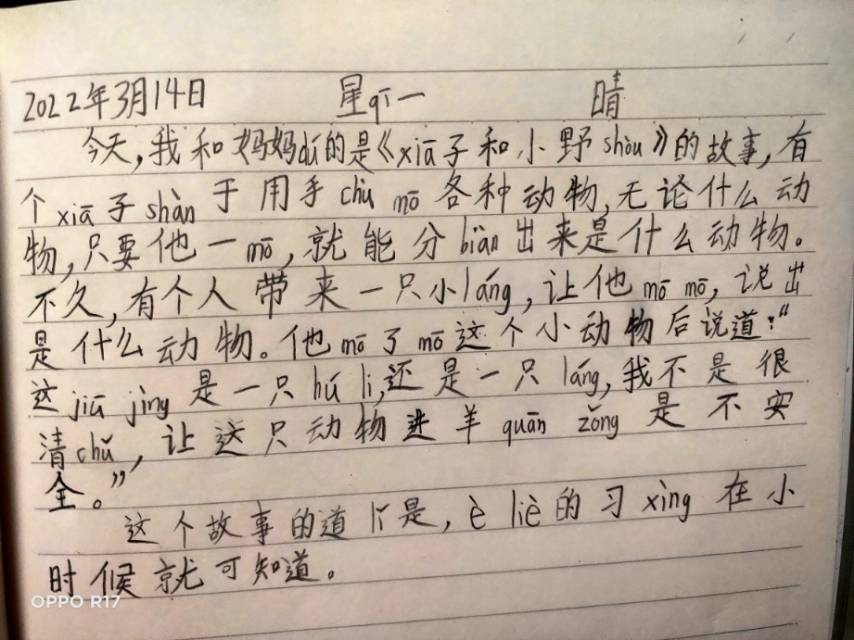 2022年3月14日 星qī一 晴
今天,我和妈妈dú的是《xiā子和小野shòu》的故事,有
个xiā子shàn于用手chù mō各种动物,无论什么动
物,只要他一mō,就能分biàn出来是什么动物。
不久,有个人带来一只小láng,让他mō mō,说出
是什么动物。他mō了mō这个小动物后说道:“
这jiū jìng是一只hú li,还是一只láng,我不是很
清chǔ,让这只动物进羊quān zǒng是不安
全。”
这个故事的道lǐ是,è liè的习xìng在小
时候就可知道。
OPPO R17